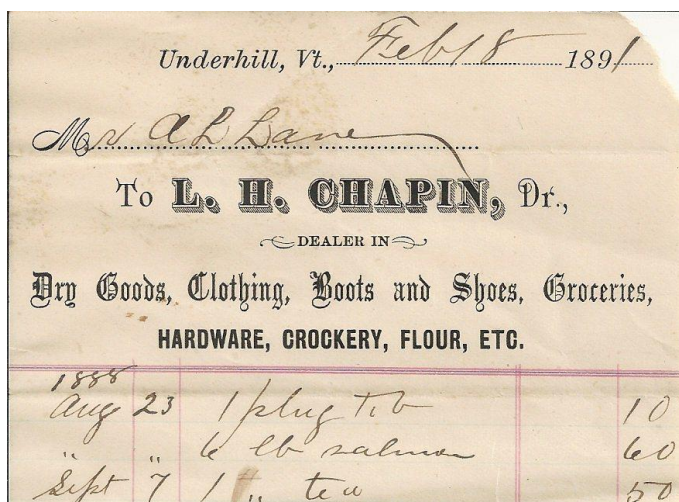 Underhill, Vt., Feb 18 1891
Mr A L Lane
To L. H. CHAPIN, Dr.,
DEALER IN
Dry Goods, Clothing, Boots and Shoes, Groceries,
HARDWARE, CROCKERY, FLOUR, ETC.
1888
Aug 23 1 plug Tob 10
" " 6 lb salmon 60
Sept 7 1 " tea 50